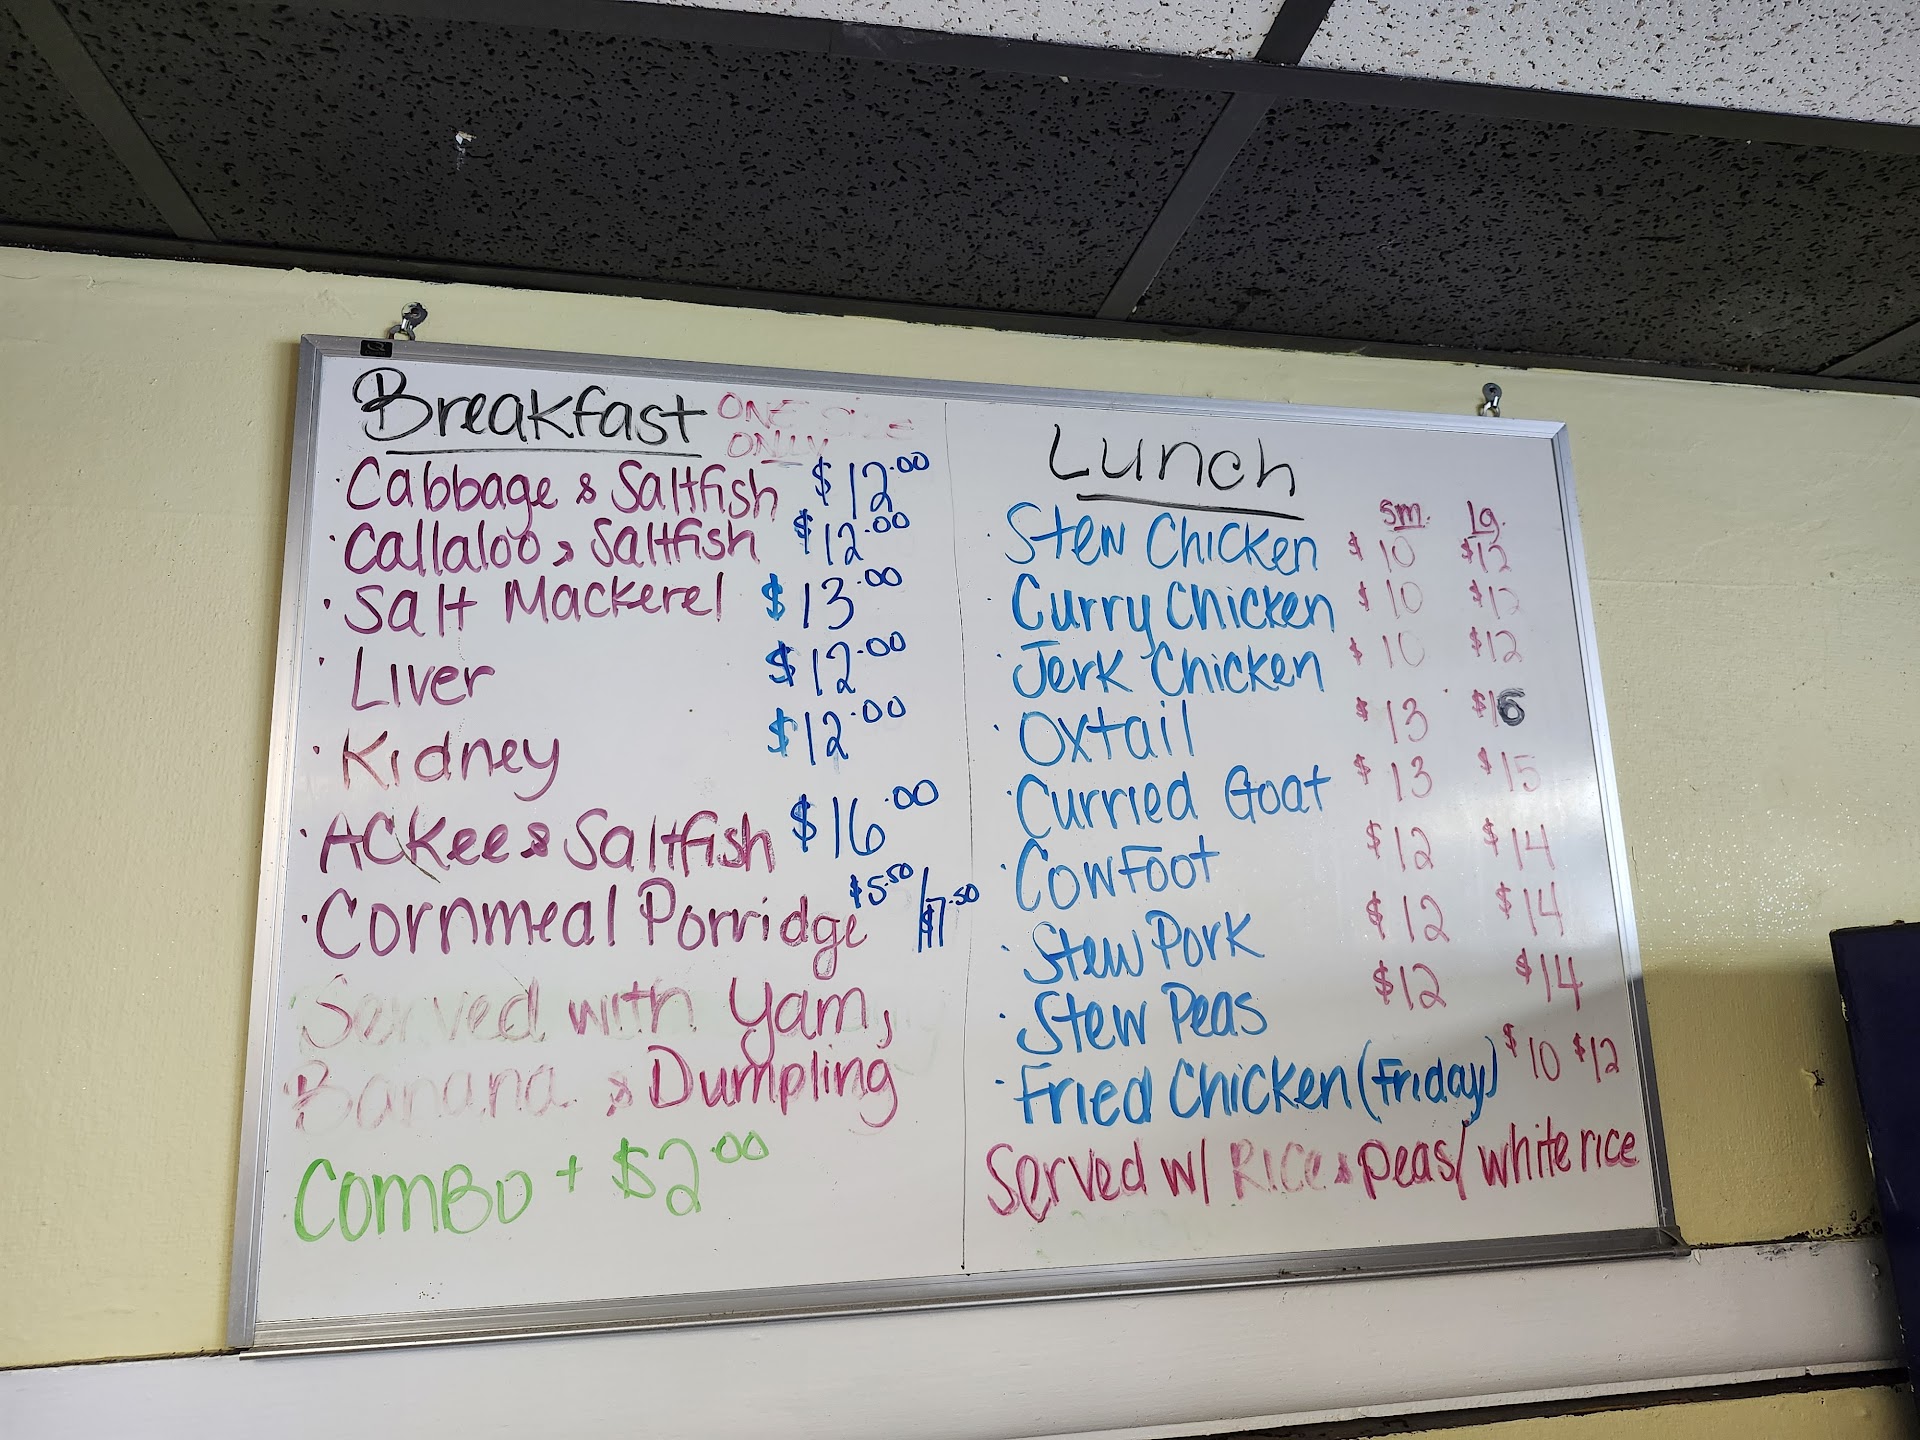 Breakfast ONE SIZE ONLY
· Cabbage & Saltfish $12.00
· Callaloo & Saltfish $12.00
· Salt Mackerel $13.00
· Liver $12.00
· Kidney $12.00
· Ackee & Saltfish $16.00
· Cornmeal Porridge $5.50/$7.50
Served with Yam,
Banana & Dumpling
Combo + $2.00
Lunch
sm. lg.
· Stew Chicken $10 $12
· Curry Chicken $10 $12
· Jerk Chicken $10 $12
· Oxtail $13 $16
· Curried Goat $13 $15
· Cowfoot $12 $14
· Stew Pork $12 $14
· Stew Peas $12 $14
· Fried Chicken (Friday) $10 $12
Served w/ Rice & peas/ white rice